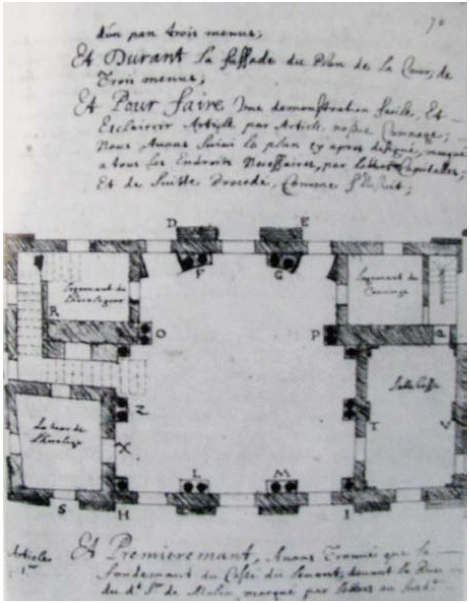 70
d'un pan trois menus;
Et Durant la fassade du Plan de la Cour, de
Trois menus;
Et Pour faire Une demonstration facile, Et
Esclaircir Article par Article, nostre
Nous Auons Suiui le plan cy apres marqué
a tous les Endroits Necessaires, par lettres Capitalles,
Et de Suitte, Comme S'Ensuit;
D E
F G
Logement de
Logement du
Concierge
R O P Q
Salle basse
Z T V
La tour de
L'horeloge
X
L M
S H I
Article
1er
Et Premieremant, Auons Trouué que le
fondemant du Costé du leuant, deuant la
du d. Sr. de marqué par lettres